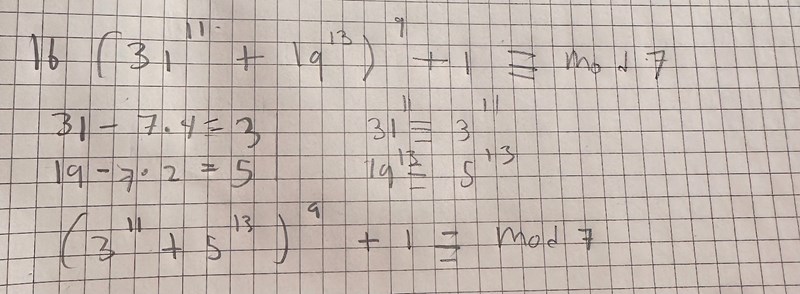 16 (31^11 + 19^13)^9 + 1 ≡ mod 7
31 - 7·4 = 3 31^11 ≡ 3^11
19 - 7·2 = 5 19^13 ≡ 5^13
(3^11 + 5^13)^9 + 1 ≡ mod 7